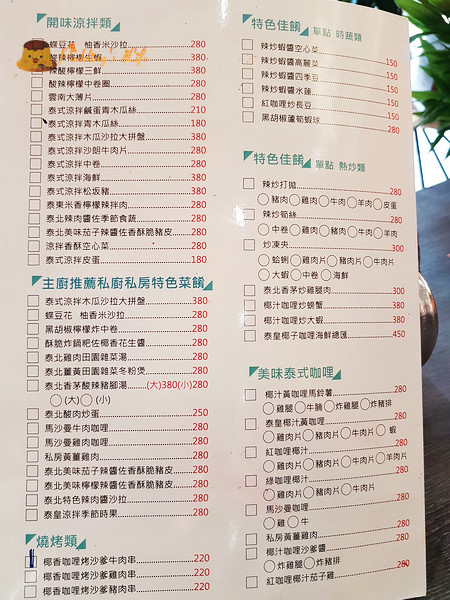 開味涼拌類
蝶豆花 柚香米沙拉 280
酸辣檸檬生蝦 380
辣酸檸檬三鮮 380
酸辣檸檬中卷圈 280
雲南大薄片 280
泰式涼拌鹹蛋青木瓜絲 210
泰式涼拌青木瓜絲 180
泰式涼拌木瓜沙拉大拼盤 380
泰式涼拌沙朗牛肉片 280
泰式涼拌中卷 280
泰式涼拌海鮮 380
泰式涼拌松坂豬 380
泰東米香檸檬辣拌肉 280
泰北辣肉醬佐季節食蔬 280
泰北美味茄子辣醬佐香酥脆豬皮 280
涼拌香酥空心菜 280
泰式涼拌皮蛋 180
主廚推薦私廚私房特色菜餚
泰式涼拌木瓜沙拉大拼盤 380
蝶豆花 柚香米沙拉 280
黑胡椒檸檬炸中卷 280
酥脆炸鍋粑佐椰香花生醬 280
泰北雞肉田園雜菜湯 280
泰北薑黃田園雜菜冬粉煲 280
泰北香茅酸辣豬腳湯 (大)380(小)280
(大) (小)
泰北酸肉炒蛋 250
馬沙曼牛肉咖哩 280
馬沙曼雞肉咖哩 280
私房黃薑雞肉 280
泰北美味茄子辣醬佐香酥脆豬皮 280
泰北美味檸檬辣醬佐香酥脆豬皮 280
泰北特色辣肉醬沙拉 280
泰皇涼拌季節時果 280
燒烤類
椰香咖哩烤沙爹牛肉串 220
椰香咖哩烤沙爹雞肉串 220
椰香咖哩烤沙爹豬肉串 220
特色佳餚 單點 時蔬類
辣炒蝦醬空心菜 150
辣炒蝦醬高麗菜 150
辣炒蝦醬四季豆 150
辣炒蝦醬水蓮 150
紅咖哩炒長豆 150
黑胡椒蘆筍蝦球 280
特色佳餚 單點 熱炒類
辣炒打拋 280
豬肉 雞肉 牛肉 羊肉 皮蛋
辣炒筍絲 280
中卷 雞肉 豬肉 牛肉 羊肉
炒凍央 300
蛤蜊 雞肉片 豬肉片 牛肉片
大蝦 中卷 海鮮
泰北香茅炒雞腿肉 300
椰汁咖哩炒螃蟹 380
椰汁咖哩炒大蝦 380
泰皇椰子咖哩海鮮總匯 450
美味泰式咖哩
椰汁黃咖哩馬鈴薯 280
雞腿 牛腩 炸雞腿 炸豬排
泰皇椰汁黃咖哩 280
雞肉片 豬肉片 牛肉片 蝦
紅咖哩椰汁 280
雞肉片 豬肉片 牛肉片 羊肉片
綠咖哩椰汁 280
雞肉片 豬肉片 牛肉片
馬沙曼咖哩 280
雞 牛
私房黃薑雞肉 280
椰汁咖哩沙爹醬 280
炸雞腿 炸豬排
紅咖哩椰汁茄子雞 280